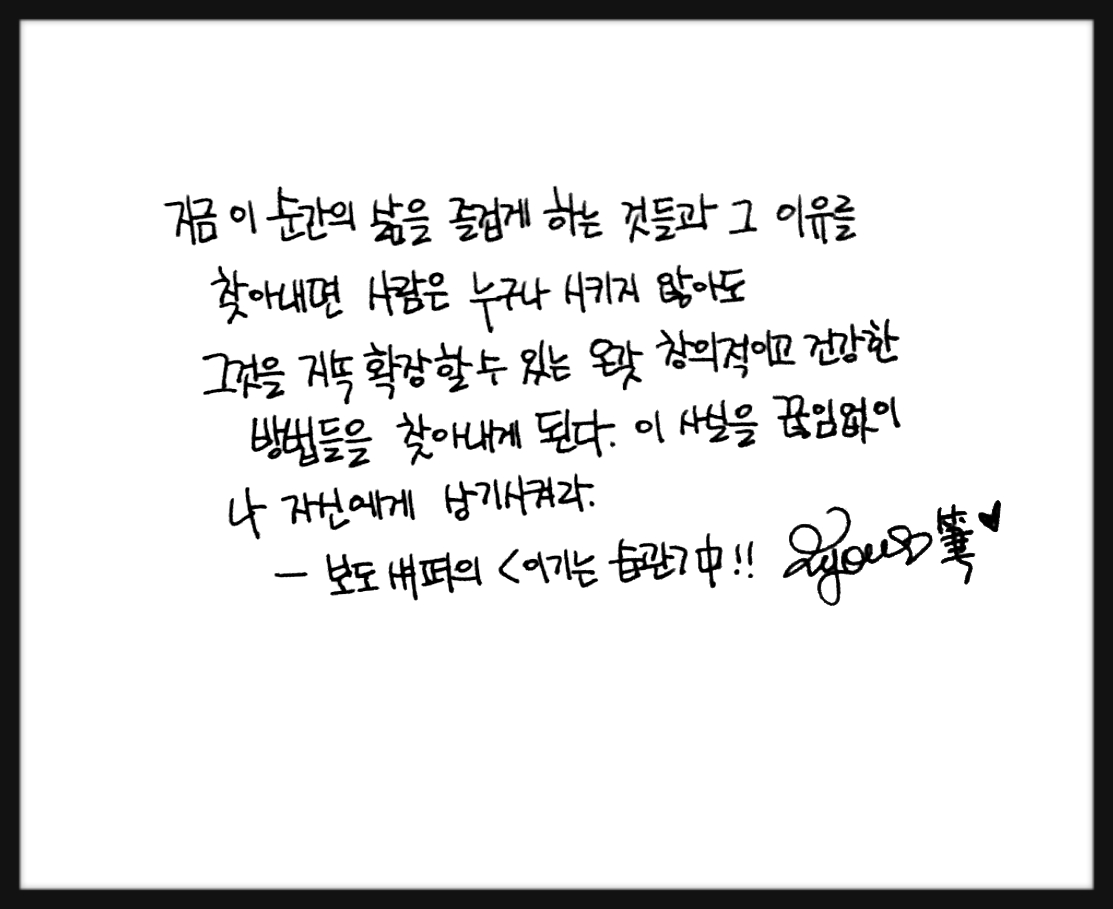 지금 이 순간의 삶을 즐겁게 하는 것들과 그 이유를
찾아내면 사람은 누구나 시키지 않아도
그것을 지뚝 확장할 수 있는 온갖 창의적이고 건강한
방법들을 찾아내게 된다. 이 사실을 끊임없이
나 자신에게 상기시켜라.
- 보도 섀퍼의 <이기는 습관> 中!!